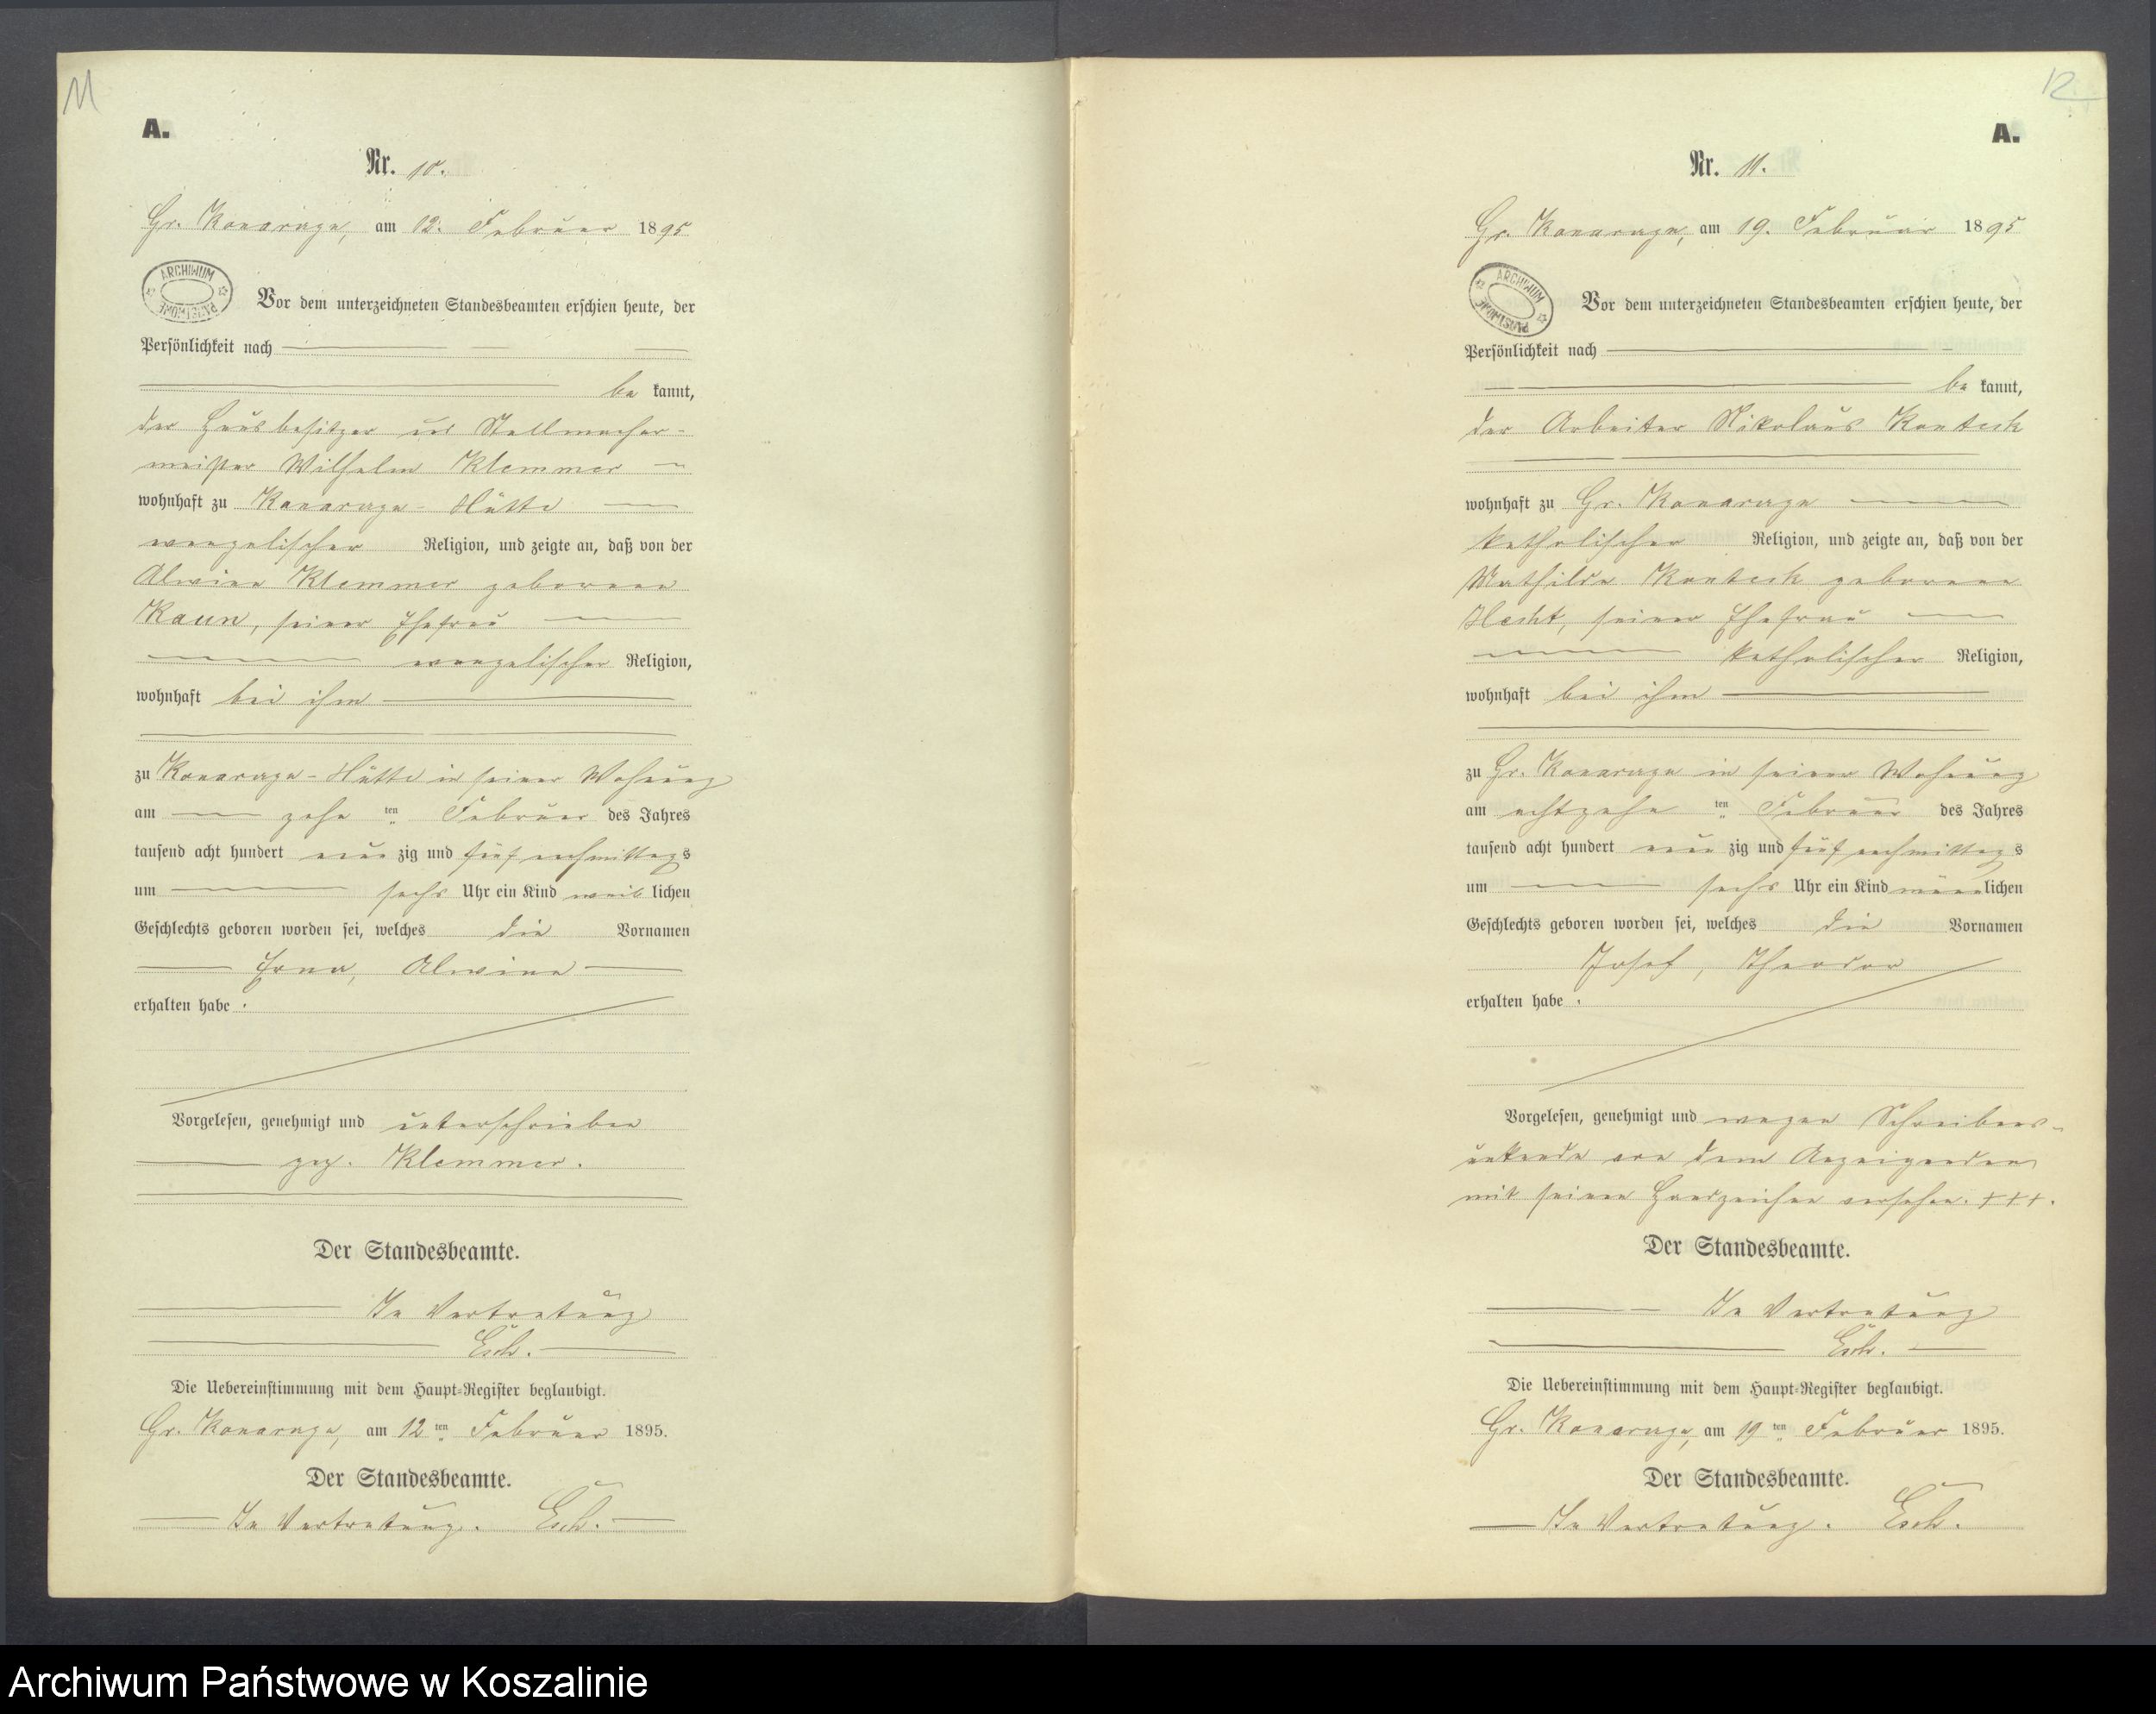 11
A.
Nr. 10.
Gr. Konarczyn, am 12. Februar 1895
ARCHIWUM PAŃSTWOWE
Vor dem unterzeichneten Standesbeamten erschien heute, der
Persönlichkeit nach
be kannt,
der Hausbesitzer und Stellmacher-
meister Wilhelm Klemmer
wohnhaft zu Hütte
evangelischer Religion, und zeigte an, daß von der
Alwine Klemmer geborenen
Kaun, seiner Ehefrau
evangelischer Religion,
wohnhaft bei ihm
zu Hütte in seiner Wohnung
am zehn ten Februar des Jahres
tausend acht hundert neun zig und fünf nachmittags
um sechs Uhr ein Kind weib lichen
Geschlechts geboren worden sei, welches die Vornamen
Erna, Alwine
erhalten habe.
Vorgelesen, genehmigt und unterschrieben
gez. Klemmer.
Der Standesbeamte.
In Vertretung
Esch.
Die Uebereinstimmung mit dem Haupt-Register beglaubigt.
Gr. am 12ten Februar 1895.
Der Standesbeamte.
In Vertretung. Esch.
12
A.
Nr. 11.
Gr. am 19. Februar 1895
ARCHIWUM PAŃSTWOWE
Vor dem unterzeichneten Standesbeamten erschien heute, der
Persönlichkeit nach
be kannt,
der Arbeiter Nikolaus Konteck
wohnhaft zu Gr.
katholischer Religion, und zeigte an, daß von der
Mathilde Konteck geborenen
Hecht, seiner Ehefrau
katholischer Religion,
wohnhaft bei ihm
zu Gr. in seiner Wohnung
am achtzehn ten Februar des Jahres
tausend acht hundert neun zig und fünf nachmittags
um sechs Uhr ein Kind männlichen
Geschlechts geboren worden sei, welches die Vornamen
Josef, Theodor
erhalten habe.
Vorgelesen, genehmigt und wegen Schreibens-
unkunde von dem Anzeigenden
mit seinen Handzeichen versehen. +++.
Der Standesbeamte.
In Vertretung
Esch.
Die Uebereinstimmung mit dem Haupt-Register beglaubigt.
Gr. am 19ten Februar 1895.
Der Standesbeamte.
In Vertretung. Esch.
Archiwum Państwowe w Koszalinie